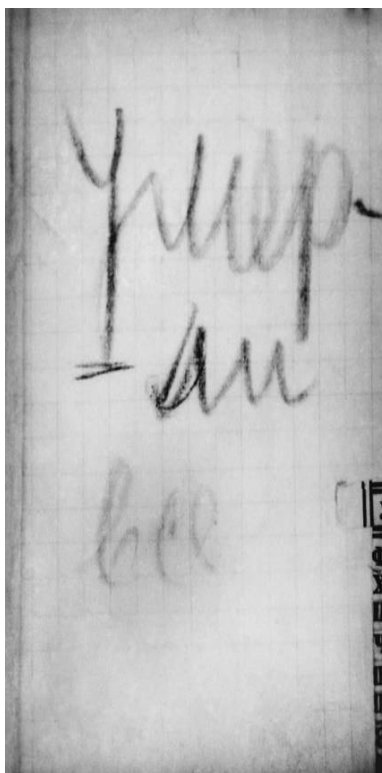 Умер-
= ли
все